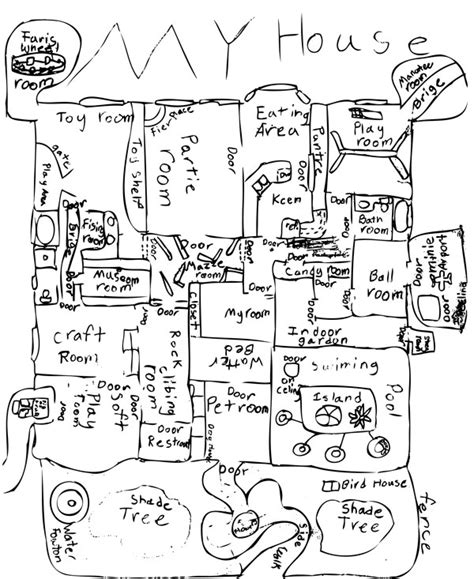 MY House
Faris
wheel
room
Manatee
room
Brige
Toy room
Fier Place
Eating
Area
Play
room
gate
Toy Shelf
Partie
room
Door
Pantrie
Play Area
Door
Fising
room
Brige
Door
Keen
ref
Door
Door
Bath
room
Door
Museom
room
Door
Mazze
room
Door
Candy
room
Ball
room
Door
Airport
Door
Closet
Myroom
Door
Indoor
garden
Door
Craft
Room
Door
Rock
Clibing
room
Watter
Bed
Swiming
Pool
Door
on
celing
Island
Door
Play
room
Soft
Door
Door
Restront
Door
Petroom
Door
Bird House
Shade
Tree
Water
Fowton
Side
Walk
Shade
Tree
fence